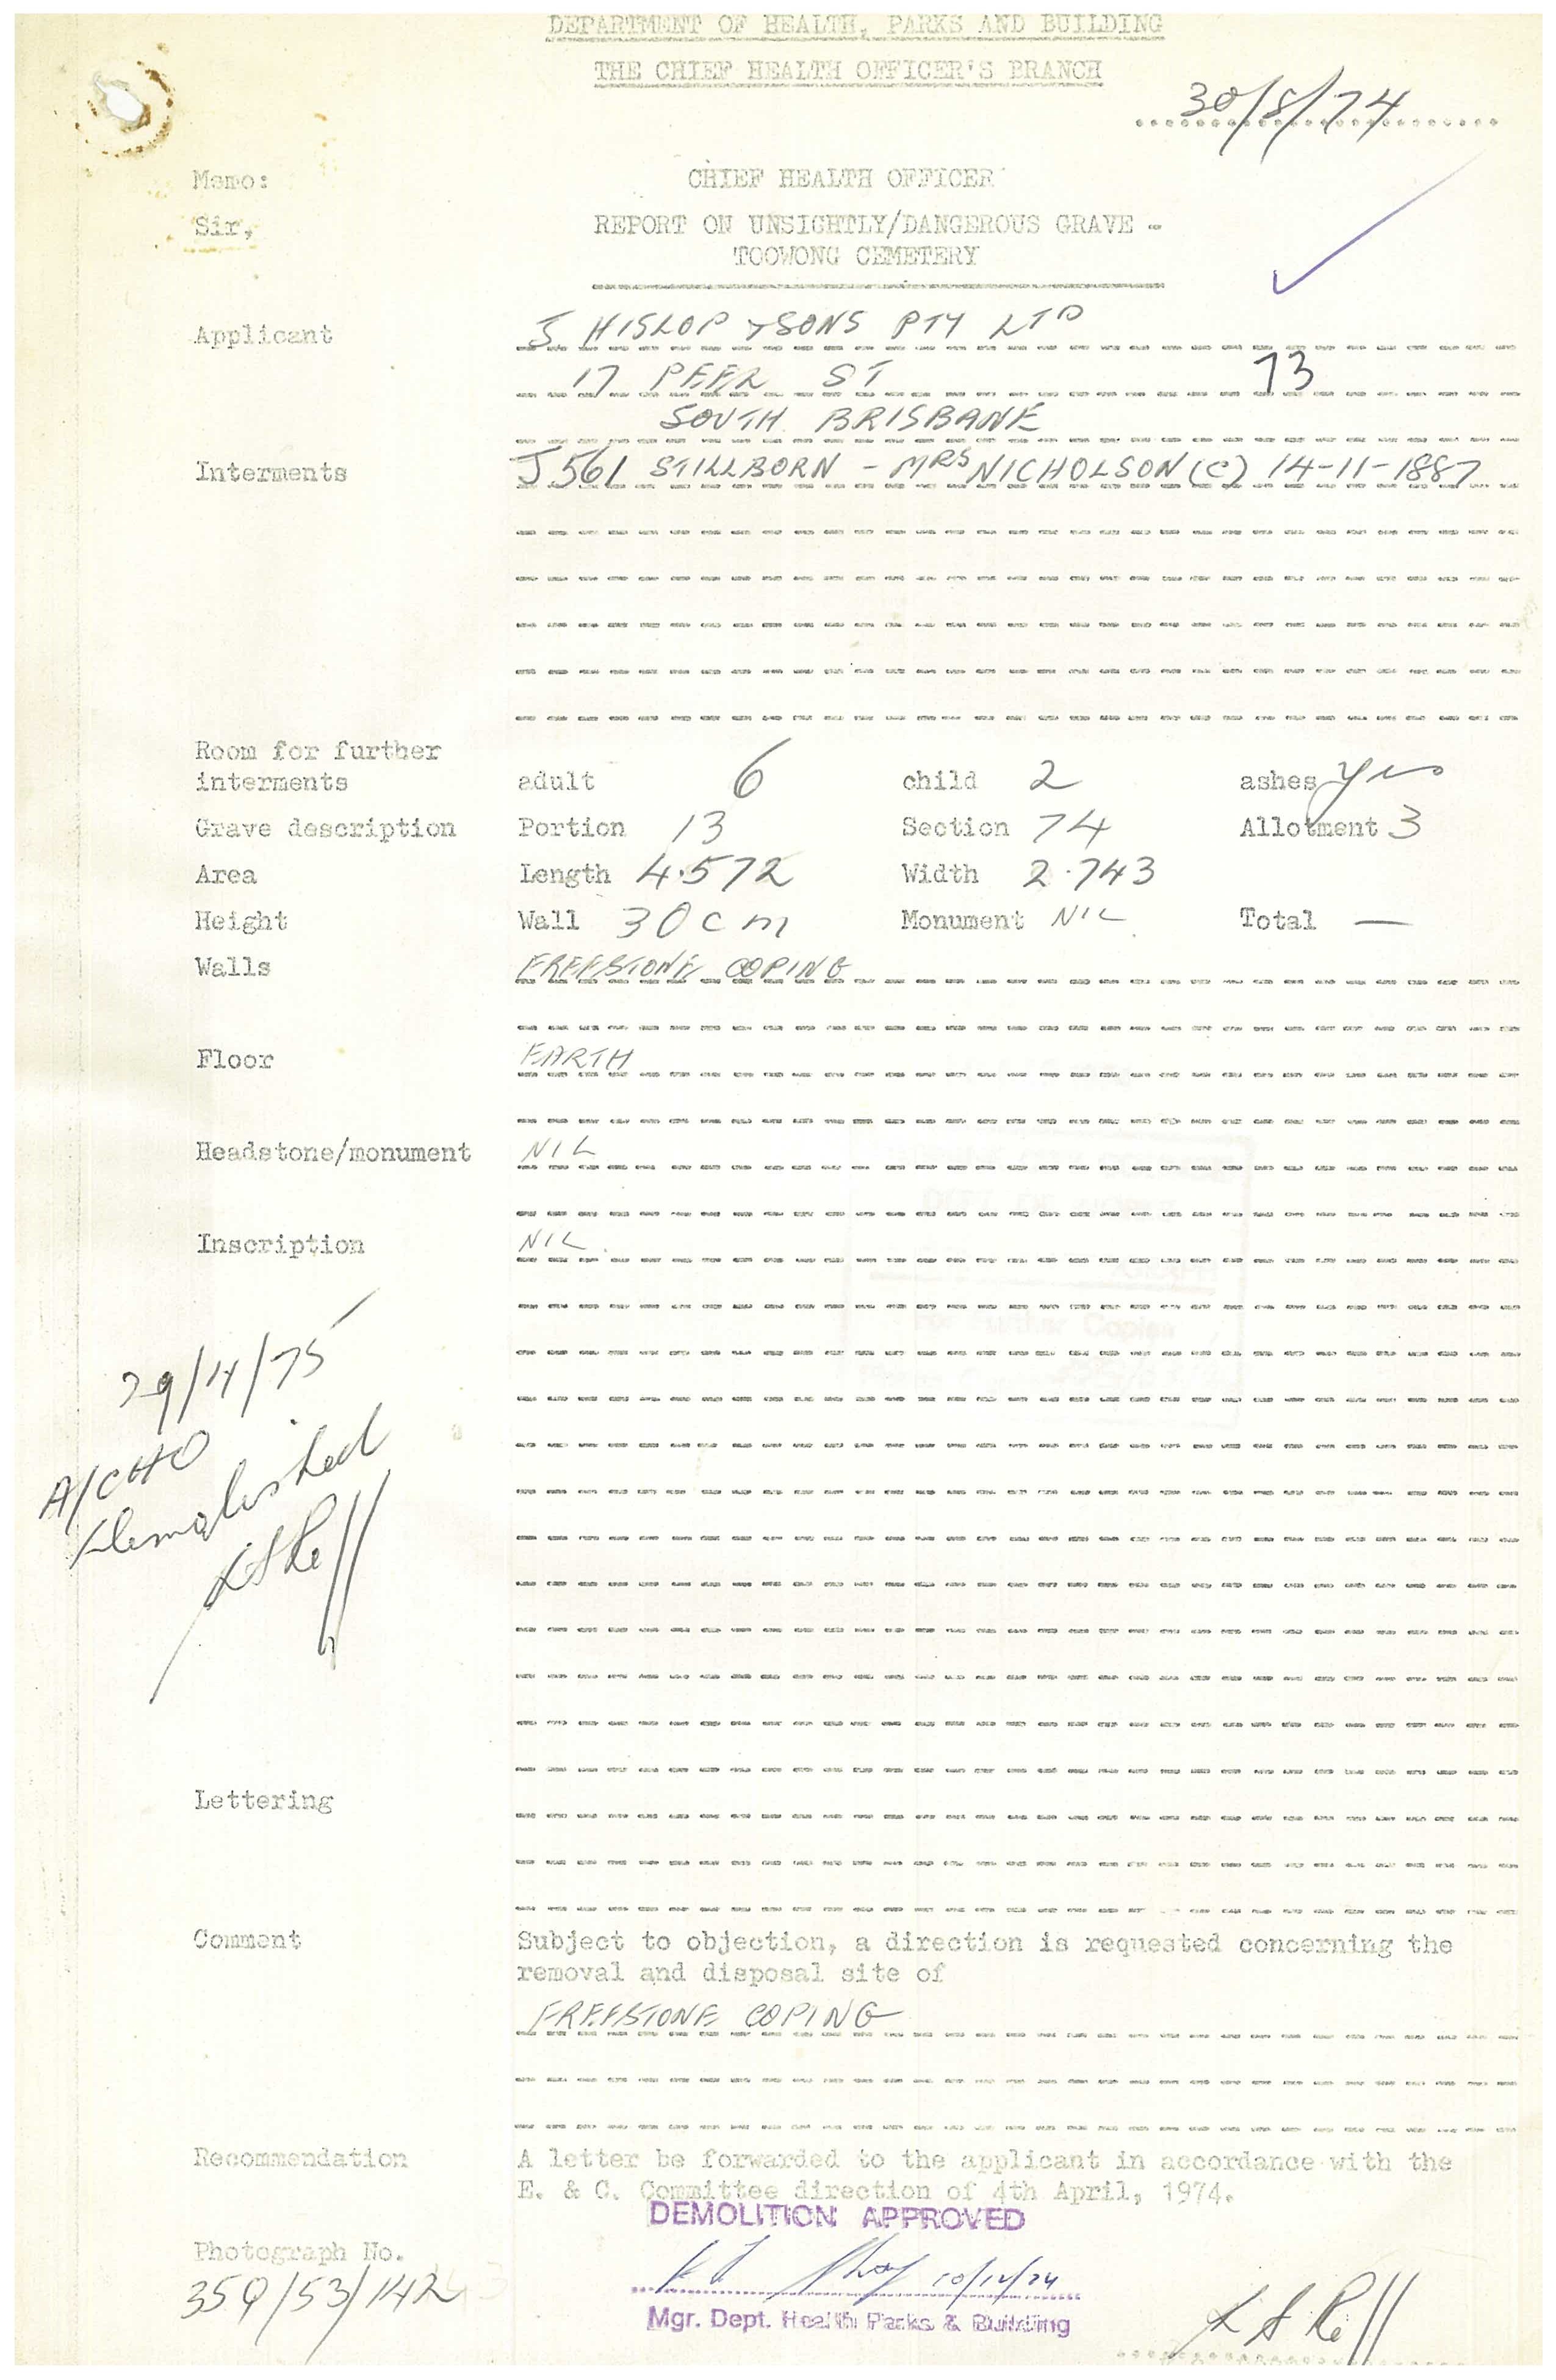 DEPARTMENT OF HEALTH, PARKS AND BUILDING
THE CHIEF HEALTH OFFICER'S BRANCH
30/8/74
Memo: CHIEF HEALTH OFFICER
Sir, REPORT ON UNSIGHTLY/DANGEROUS GRAVE -
TOOWONG CEMETERY
Applicant J HISLOP & SONS PTY LTD
17 PEEL ST 73
SOUTH BRISBANE
Interments J561 STILLBORN - MRS NICHOLSON (C) 14-11-1887
Room for further
interments adult 6 child 2 ashes yes
Grave description Portion 13 Section 74 Allotment 3
Area Length 4.572 Width 2.743
Height Wall 30cm Monument NIL Total —
Walls FREESTONE COPING
Floor EARTH
Headstone/monument NIL
Inscription NIL.
For Further Copies
29/4/75
A/CHO
Demolished
Lettering
Comment Subject to objection, a direction is requested concerning the
removal and disposal site of
FREESTONE COPING
Recommendation A letter be forwarded to the applicant in accordance with the
E. & C. Committee direction of 4th April, 1974.
DEMOLITION APPROVED
Photograph No.
10/12/74
359/53/142
Mgr. Dept. Health Parks & Building